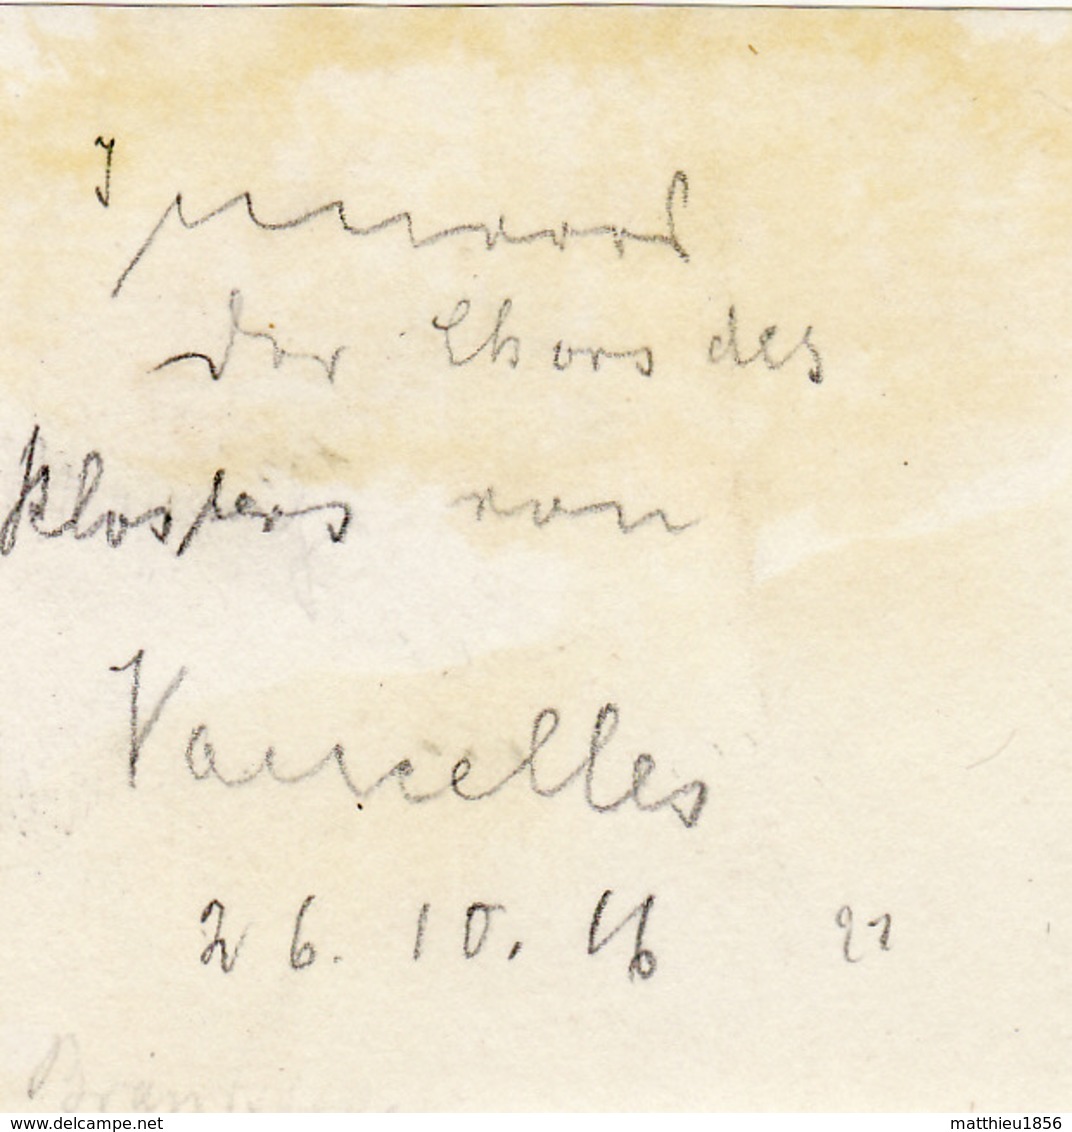 der Chors des
Klosters von
Vaucelles
26. 10. 16 21
www.delcampe.net
matthieu1856